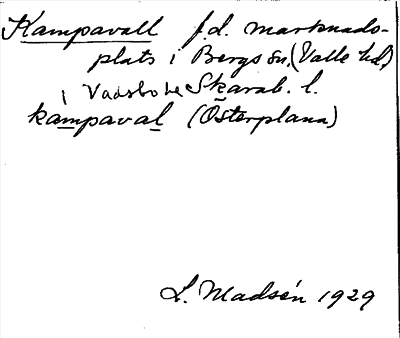 Kampavall f.d. marknads-
plats i Bergs sn, (Valle hd)
i Vadsbo hd Skarab. l.
kampaval (Österplana)
L. Madsén 1929